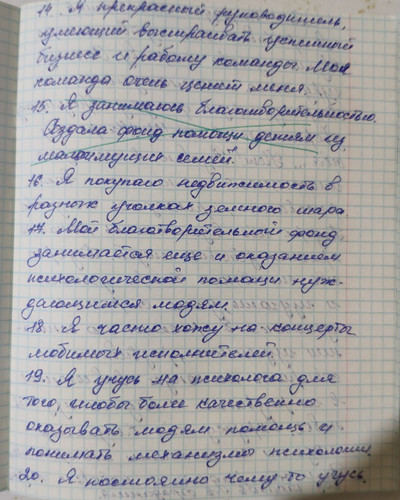 14. Я прекрасный руководитель,
умеющий выстраивать успешный
бизнес и работу команды. Моя
команда очень ценит меня.
15. Я занимаюсь благотворительностью.
Создала фонд помощи детям из
малоимущих семей.
16. Я покупаю недвижимость в
разных уголках земного шара
17. Мой благотворительный фонд,
занимается еще и оказанием
психологической помощи нуж-
дающимся людям.
18. Я часто хожу на концерты
любимых исполнителей.
19. Я учусь на психолога для
того, чтобы более качественно
оказывать людям помощь и
понимать механизмы психологии.
20. Я постоянно чему-то учусь.